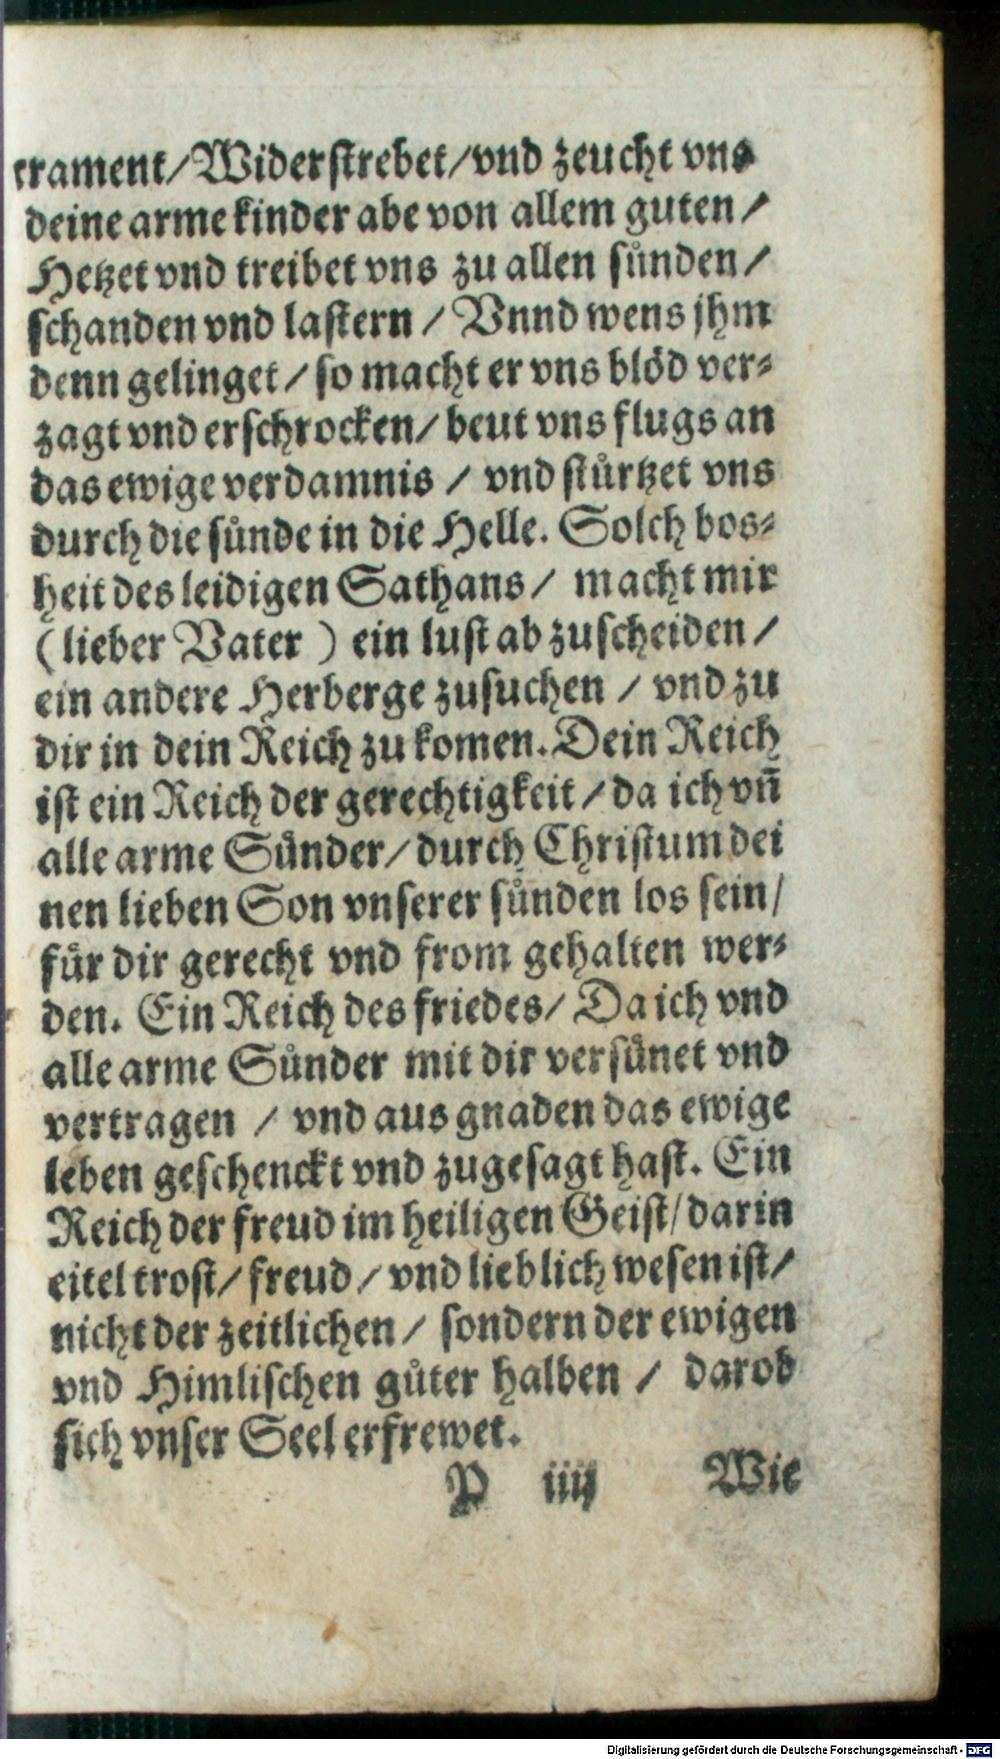 crament/Widerstrebet/vnd zeucht vns
deine arme kinder abe von allem guten/
Hetzet vnd treibet vns zu allen sůnden/
schanden vnd lastern/ Vnnd wens jhm
denn gelinget/ so macht er vns blöd ver⸗
zagt vnd erschrocken/ beut vns flugs an
das ewige verdamnis/ vnd stůrtzet vns
durch die sůnde in die Helle. Solch bos⸗
heit des leidigen Sathans/ macht mir
(lieber Vater) ein lust ab zuscheiden/
ein andere Herberge zusuchen/ vnd zu
dir in dein Reich zu komen. Dein Reich
ist ein Reich der gerechtigkeit/ da ich vñ
alle arme Sůnder/ durch Christum dei
nen lieben Son vnserer sůnden los sein/
fůr dir gerecht vnd from gehalten wer⸗
den. Ein Reich des friedes/ Da ich vnd
alle arme Sůnder mit dir versůnet vnd
vertragen/ vnd aus gnaden das ewige
leben geschenckt vnd zugesagt hast. Ein
Reich der freud im heiligen Geist/ darin
eitel trost/ freud/ vnd lieblich wesen ist/
nicht der zeitlichen/ sondern der ewigen
vnd Himlischen gůter halben/ darob
sich vnser Seel erfrewet.
P iiij Wie
Digitalisierung gefördert durch die Deutsche Forschungsgemeinschaft - DFG